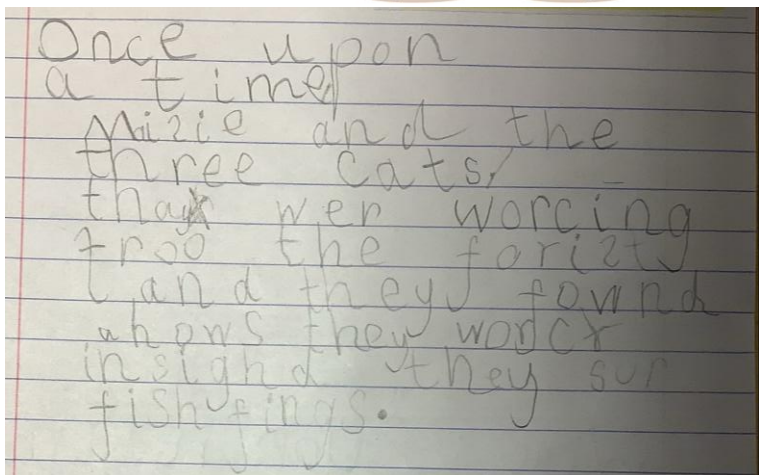 Once upon
a time
Mizie and the
three cats,
thay wen worcing
troo the forizt
and they fownd
ahows they worcx
insighd they sur
fish fings.